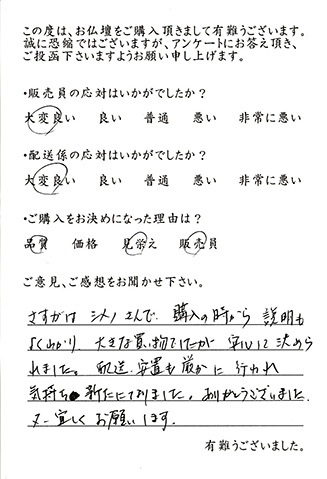 この度は、お仏壇をご購入頂きまして有難うございます。
誠に恐縮ではございますが、アンケートにお答え頂き、
ご投函下さいますようお願い申し上げます。
・販売員の応対はいかがでしたか？
大変良い 良い 普通 悪い 非常に悪い
・配送係の応対はいかがでしたか？
大変良い 良い 普通 悪い 非常に悪い
・ご購入をお決めになった理由は？
品質 価格 見栄え 販売員
ご意見、ご感想をお聞かせ下さい。
さすがは シメノさんで、購入の時から 説明も
よくわかり 大きな買い物でしたが 安心して決めら
れました。配送、安置も厳かに 行われ
気持ち 新たになりました。ありがとうございました。
又 宜しく お願いします。
有難うございました。